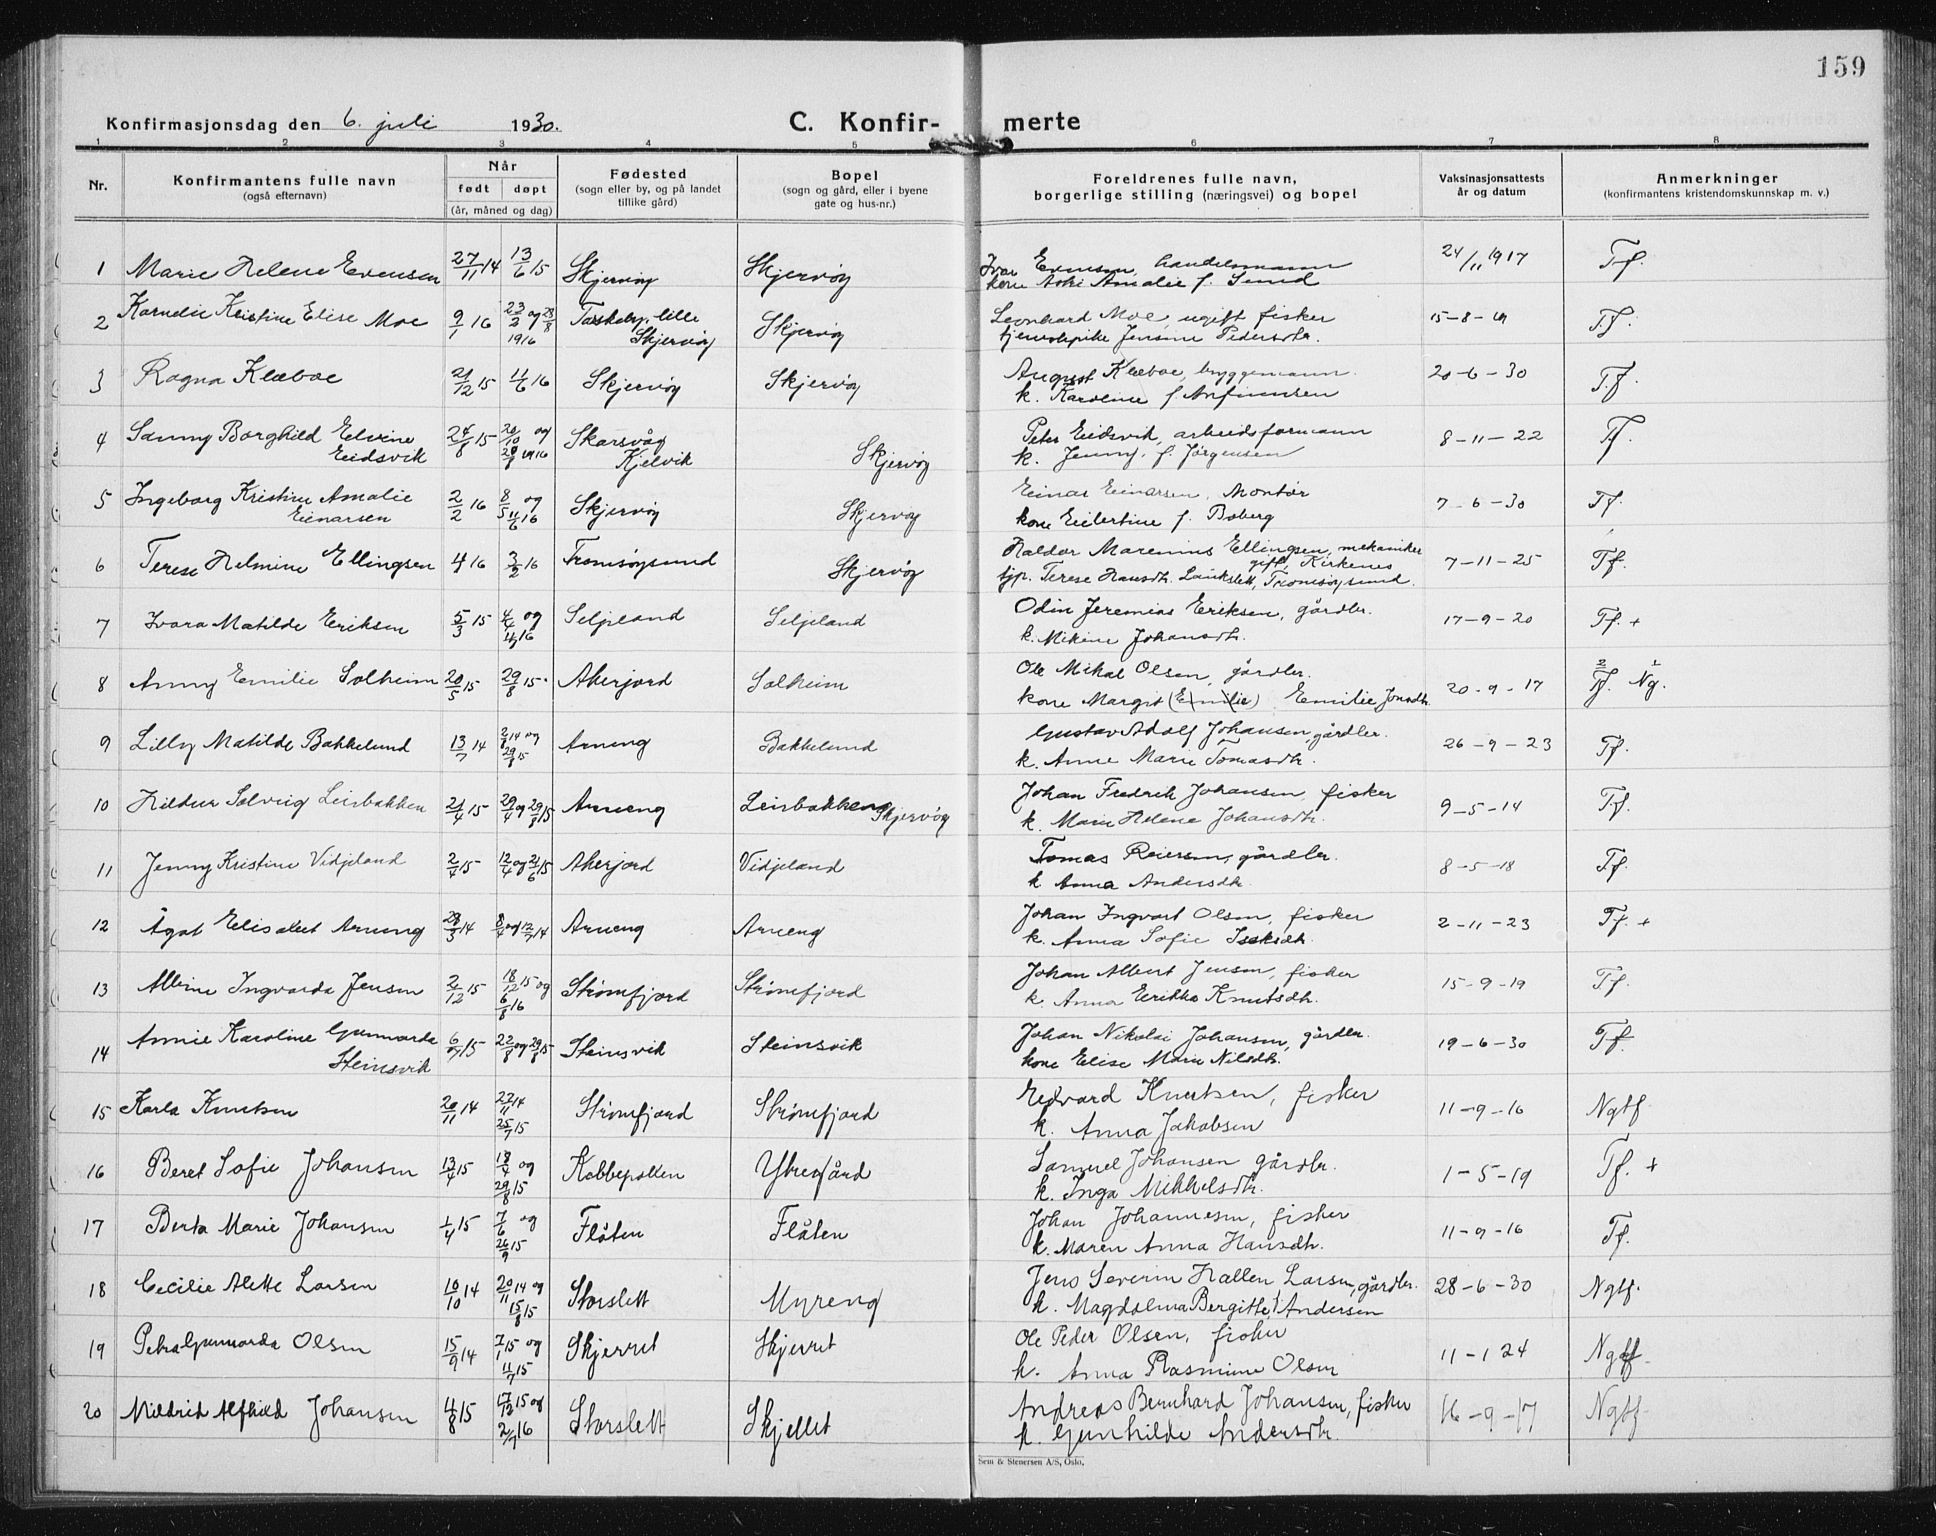 159
Konfirmasjonsdag den 6. juli 1930. C. Konfir- merte
1 2 3 4 5 6 7 8
Nr. Konfirmantens fulle navn (også efternavn) Når født døpt (år, måned og dag) Fødested (sogn eller by, og på landet tillike gård) Bopel (sogn og gård, eller i byene gate og hus-nr.) Foreldrenes fulle navn, borgerlige stilling (næringsvei) og bopel Vaksinasjonsattests år og datum Anmerkninger (konfirmantens kristendomskunnskap m. v.)
1 Marie Helene Evensen 27/11 14 13/6 15 Skjervøy Skjervøy Evensen, handelsmann 24/11 1917 Tf.
kone Amalie f. Sund
2 Kornelie Kristine Elise Moe 9/1 16 23/2 og 1916 lille Skjervøy Skjervøy Leonhard Moe, ugift fisker 15-8-19 Tf.
tjenestepike Jensine Pedersdtr.
3 Ragna Klæboe 21/12 15 11/6 16 Skjervøy Skjervøy August Klæboe, bryggemann. 20-6-30 T.f.
k. Karoline f Anfinnsen
4 Sanny Borghild Elvine 24/8 15 20/10 og Skarsvåg Peter Eidsvik, arbeidsformann 8-11-22 Tf.
Eidsvik 1916 Kjelvik Skjervøy k. Jenny, f. Jørgensen
5 Ingeborg Kristine Amalie 2/2 16 8/5 og 11/6 16 Skjervøy Skjervøy Einar Einarsen, Montør 7-6-30 Tf.
Einarsen kone Eilertine f. Boberg
6 Terese Helmine Ellingsen 4/1 16 3/2 16 Tromsøysund Skjervøy Haldor Marenius Ellingsen, mekaniker 7-11-25 Tf.
gift, Kirkenes
tjp. Terese Hansdtr. Laukslett, Tromsøysund.
7 Ivara Matilde Eriksen 5/3 15 4/4 og 4/7 16 Seljeland Seljeland Odin Jeremias Eriksen, gårdbr. 17-9-20 Tf. +
k. Mikine Johansdtr.
8 Anny Emilie Solheim 20/5 15 29/8 15 Akerjord Solheim Ole Mikal Olsen, gårdbr. 20-9-17 Tf. Ng.
kone Margit (Emilie) Emilie Jonsdtr.
9 Lilly Matilde Bakkelund 13/7 14 2/8 14 og 29/8 15 Arneng Bakkelund Gustav Adolf Johansen, gårdbr. 26-9-23 Tf.
k. Anne Marie Tomasdtr.
10 Hildur Solveig Leirbakken 21/4 15 29/4 og 29/8 15 Arneng Leirbakken, Skjervøy Johan Fredrik Johansen, fisker 9-5-14 Tf.
k. Marie Helene Johansdtr.
11 Jenny Kristine Vidjeland 2/4 15 12/4 og 21/6 15 Akerjord Vidjeland Tomas Reiersen, gårdbr. 8-5-18 Tf.
k Anna Andersdtr.
12 Ågot Elisabet Arneng 28/3 14 8/4 og 12/7 14 Arneng Arneng Johan Ingvart Olsen, fisker 2-11-23 Tf. +
k. Anna Sofie Isaksdtr.
13 Albine Ingvarda Jensen 2/12 15 18/12 15 og 6/8 16 Strømfjord Strømfjord Johan Albert Jensen, fisker 15-9-19 Tf.
k. Anna Erikka Knutsdtr.
14 Annie Karoline Gunnarda 6/7 15 22/8 og 29/8 15 Steinsvik Steinsvik Johan Nikolai Johansen, gårdbr. 19-6-30 Tf.
Steinsvik kone Elise Marie Nilsdtr.
15 Karla Knutsen 20/11 14 27/11 14 25/7 15 Strømfjord Strømfjord Edvard Knutsen, fisker 11-9-16 Ngtf.
k. Anna Jakobsen
16 Beret Sofie Johansen 13/4 15 18/4 og 29/8 15 Kobbepollen Ytregård Samuel Johansen gårdbr. 1-5-19 Tf. +
k. Inga Mikkelsdtr.
17 Berta Marie Johansen 1/4 15 7/6 og 26/9 15 Flåten Flåten Johan Johannesen, fisker 11-9-16 Tf.
k. Maren Anna Hansdtr.
18 Cecilie Alette Larsen 10/10 14 20/11 14 og 15/8 15 Storslett Myreng Jens Severin Hallen Larsen, gårdbr. 28-6-30 Ngtf.
k. Magdalena Bergitte f Andersen
19 Petra Gunnarda Olsen 15/9 14 7/1 15 og 11/7 15 Skjerret Skjerret Ole Peder Olsen, fisker 11-1 24 Ngtf.
k. Anna Rasmine Olsen
20 Mildrid Alfhild Johansen 4/8 15 17/12 15 og 2/7 16 Storslett Skjellet Andreas Bernhard Johansen, fisker 16-9-17 Ngtf.
k. Gunhilde Andersdtr.
Sem & Stenersen A/S, Oslo.